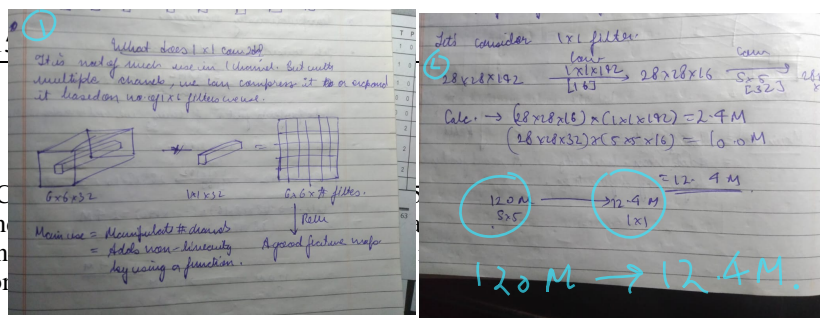 1
What does 1x1 conv do?
It is not of much use in 1 channel. But with
multiple channels, we can compress it or expand
it based on no. of 1x1 filters we use.
6x6x32
1x1x32
6x6x# filters.
Relu
A good feature maps
Main use = Manipulate # channels
= Adds non-linearity
by using a function.
Let's consider 1x1 filter.
2
28x28x192
Conv
1x1x192
[16]
28x28x16
Conv
5x5
[32]
Calc. → (28x28x16) x (1x1x192) = 2.4 M
(28x28x32) x (5x5x16) = 10.0M
= 12.4 M
120M
5x5
12.4 M
1x1
120 M → 12.4 M.